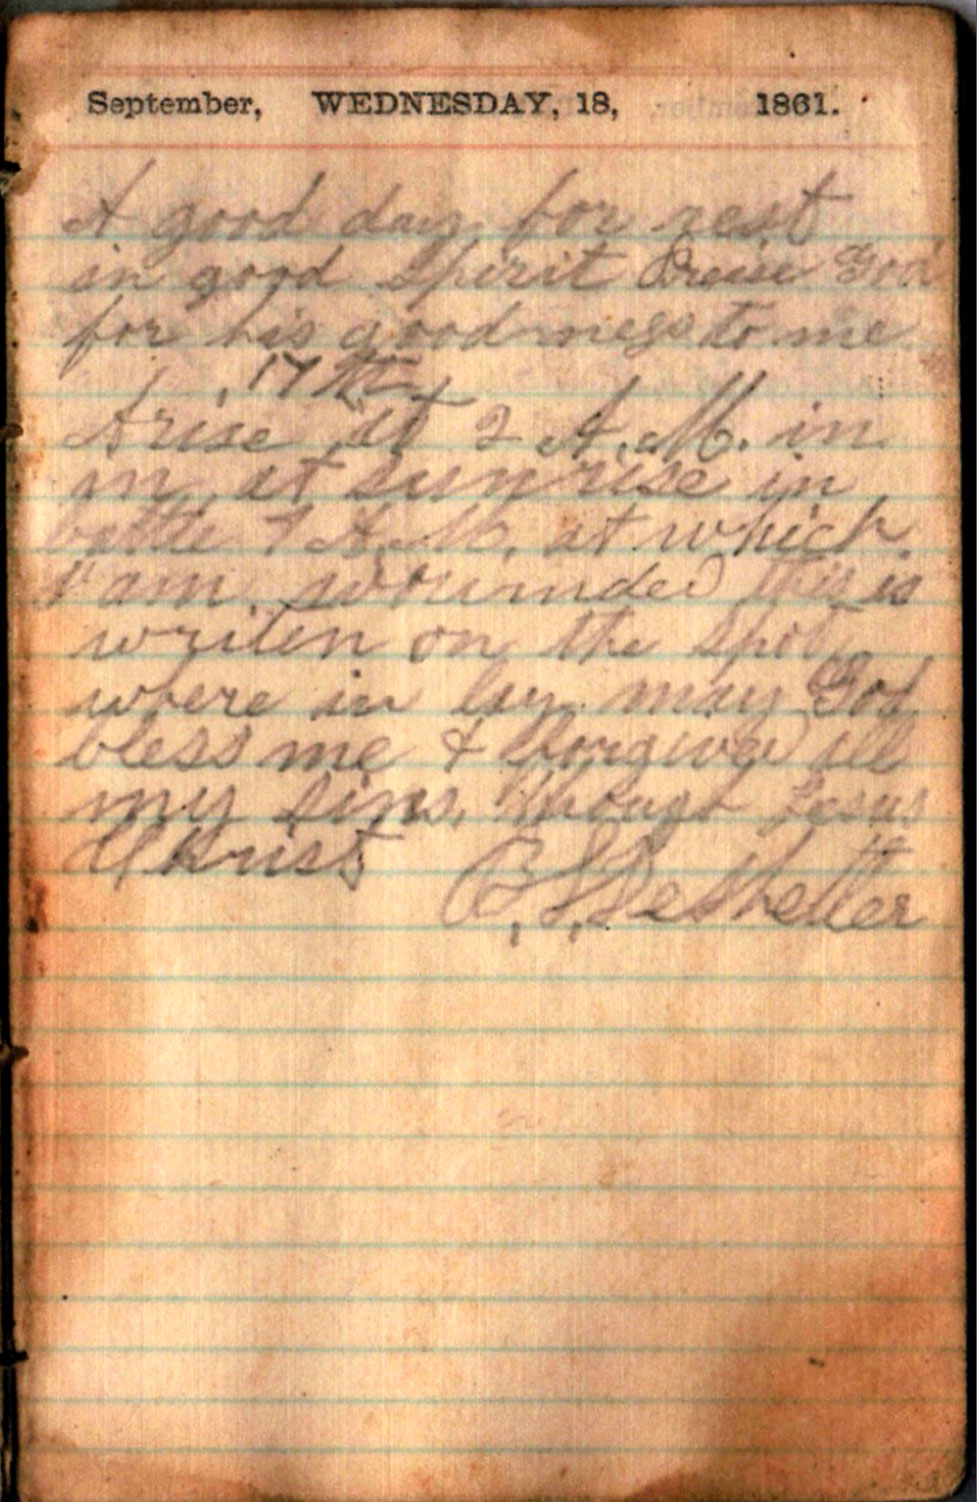 September, WEDNESDAY, 18, 1861.
A good day for rest
in good Spirit Praise God
for his goodness to me
17th
Arise at 2 A.M. in
m at sunrise in
battle 7 A.M. at which
I am wounded this is
writen on the Spot
where in lay may God
bless me & forgive all
my sins, though Jesus
Christ
B.S. DeShetler